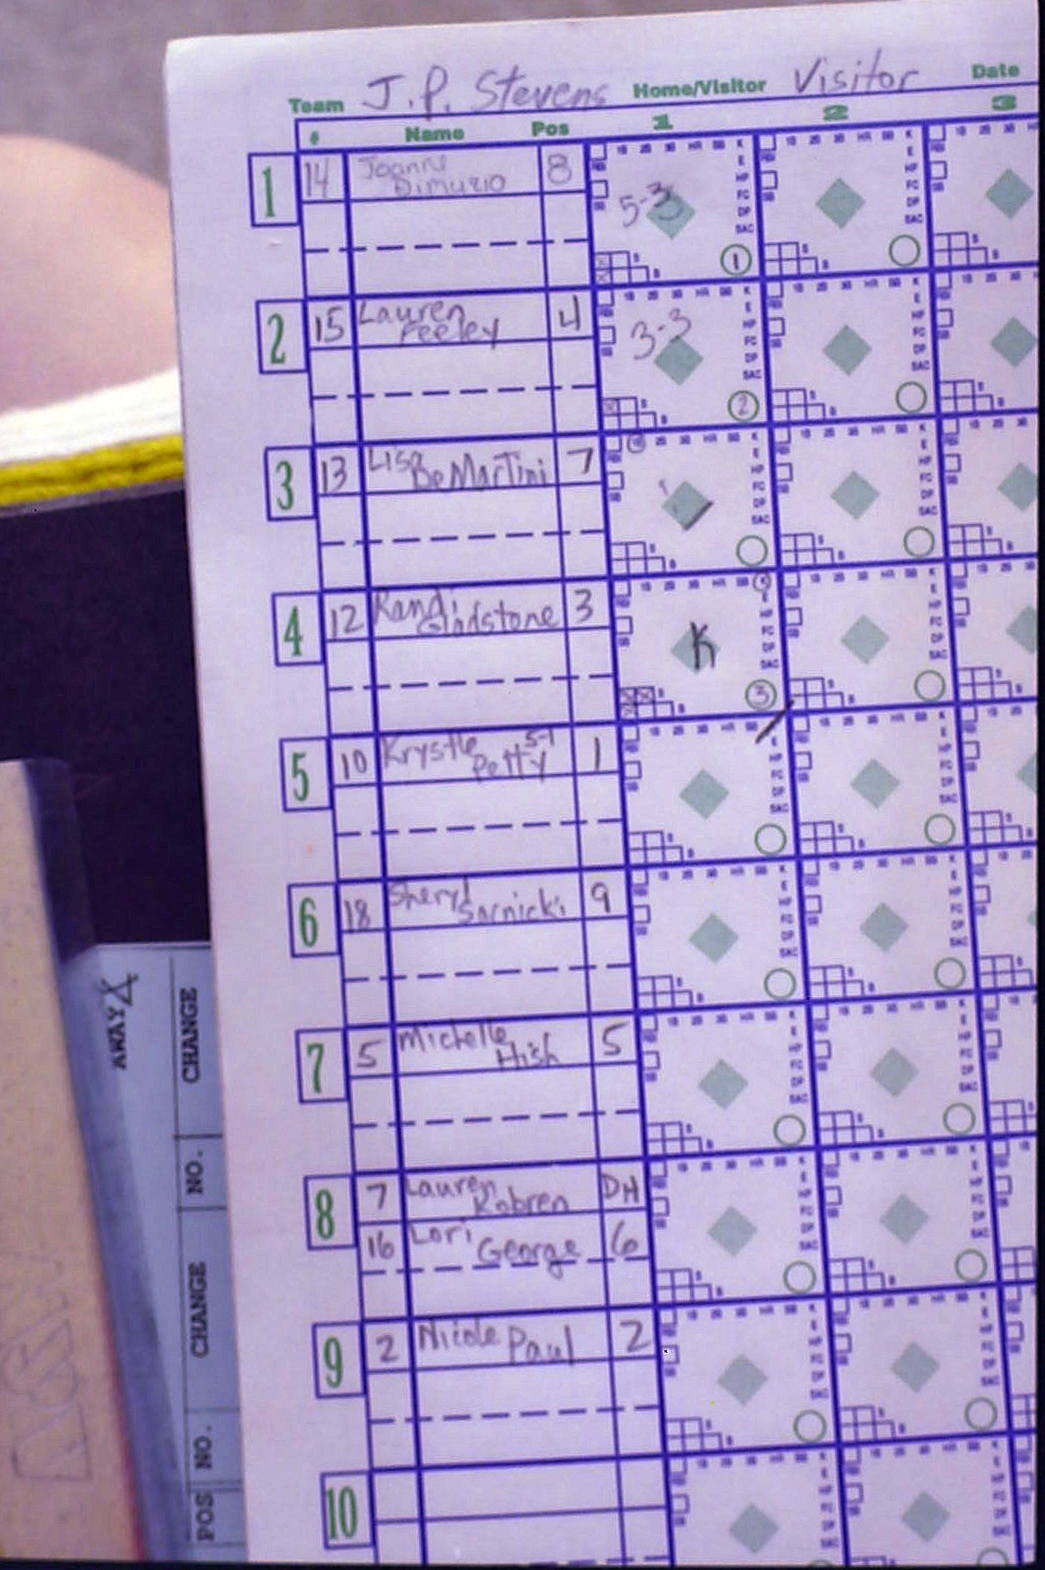 Team J.P. Stevens Home/Visitor Visitor Date
# Name Pos 1 2 3
1 14 Joanne Dimuzio 8 5-3 1
2 15 Lauren Feeley 4 3-3 2
3 13 Lisa DeMartini 7
4 12 Randi Gladstone 3 K 3
5 10 Krystle Petty 5-1 1
6 18 Sheryl Sarnicki 9
7 5 Michelle Hish 5
8 7 Lauren Kobren DH
16 Lori George 6
9 2 Nicole Paul 2
10
AWAY
CHANGE
NO.
CHANGE
NO.
POS